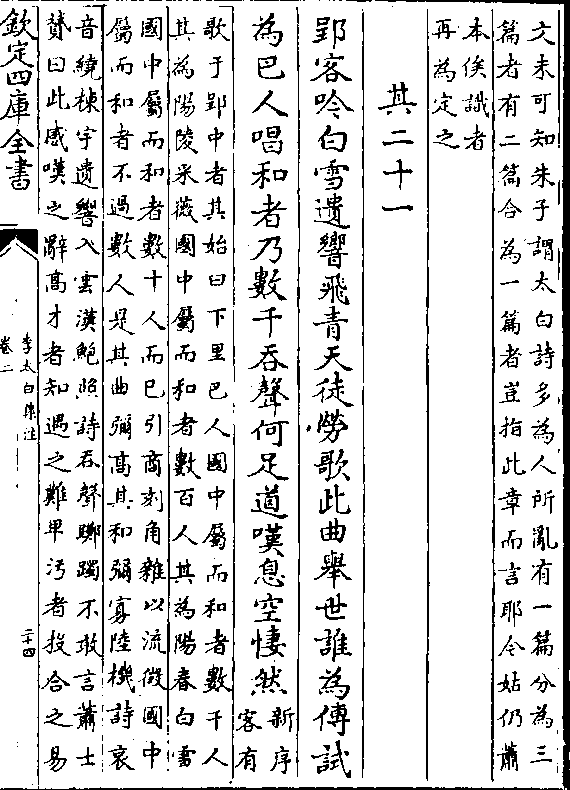 文未可知朱子謂太白詩多為人所亂有一篇分為三
篇者有二篇合為一篇者豈指此章而言耶今姑仍蕭
本俟識者
再為定之
其二十一
郢客吟白雪遺響飛青天徒勞歌此曲舉世誰為傳試
為巴人唱和者乃數千吞聲何足道嘆息空悽然
新序
客有
歌于郢中者其始曰下里巴人國中屬而和者數千人
其為陽陵采薇國中屬而和者數百人其為陽春白雪
國中屬而和者數十人而已引商刻角雜以流徵國中
屬而和者不過數人是其曲彌髙其和彌寡陸機詩哀
音繞棟宇遺響入雲漢鮑照詩吞聲躑躅不敢言蕭士
贇曰此感嘆之辭髙才者知遇之難卑汚者投合之易
欽定四庫全書
李太白集注
卷二
二十四